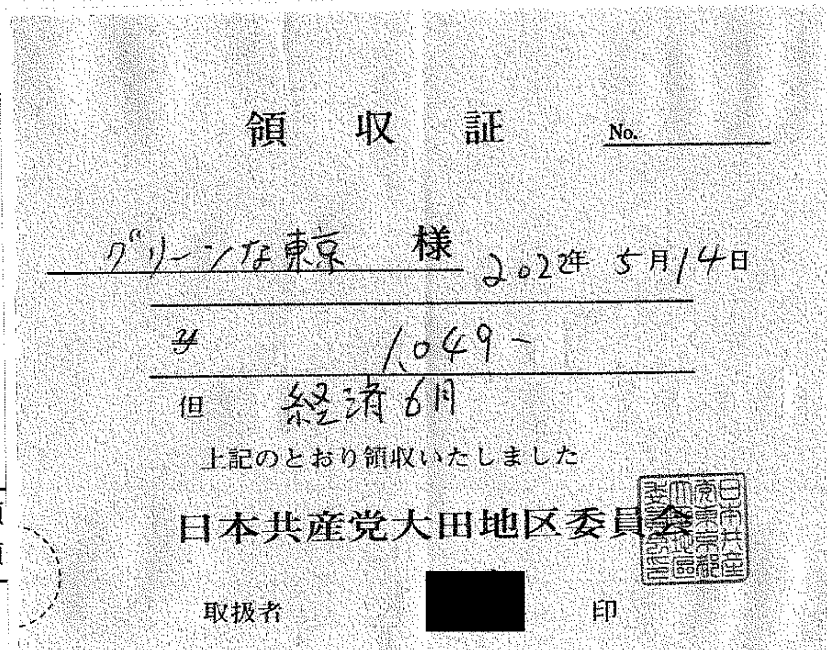 領収証 No.
グリーンな東京 様 2022年 5月14日
¥ 1,049-
但 経済6月
上記のとおり領収いたしました
日本共産党大田地区委員会
日本共産党東京都大田地区委員会之印
取扱者 印